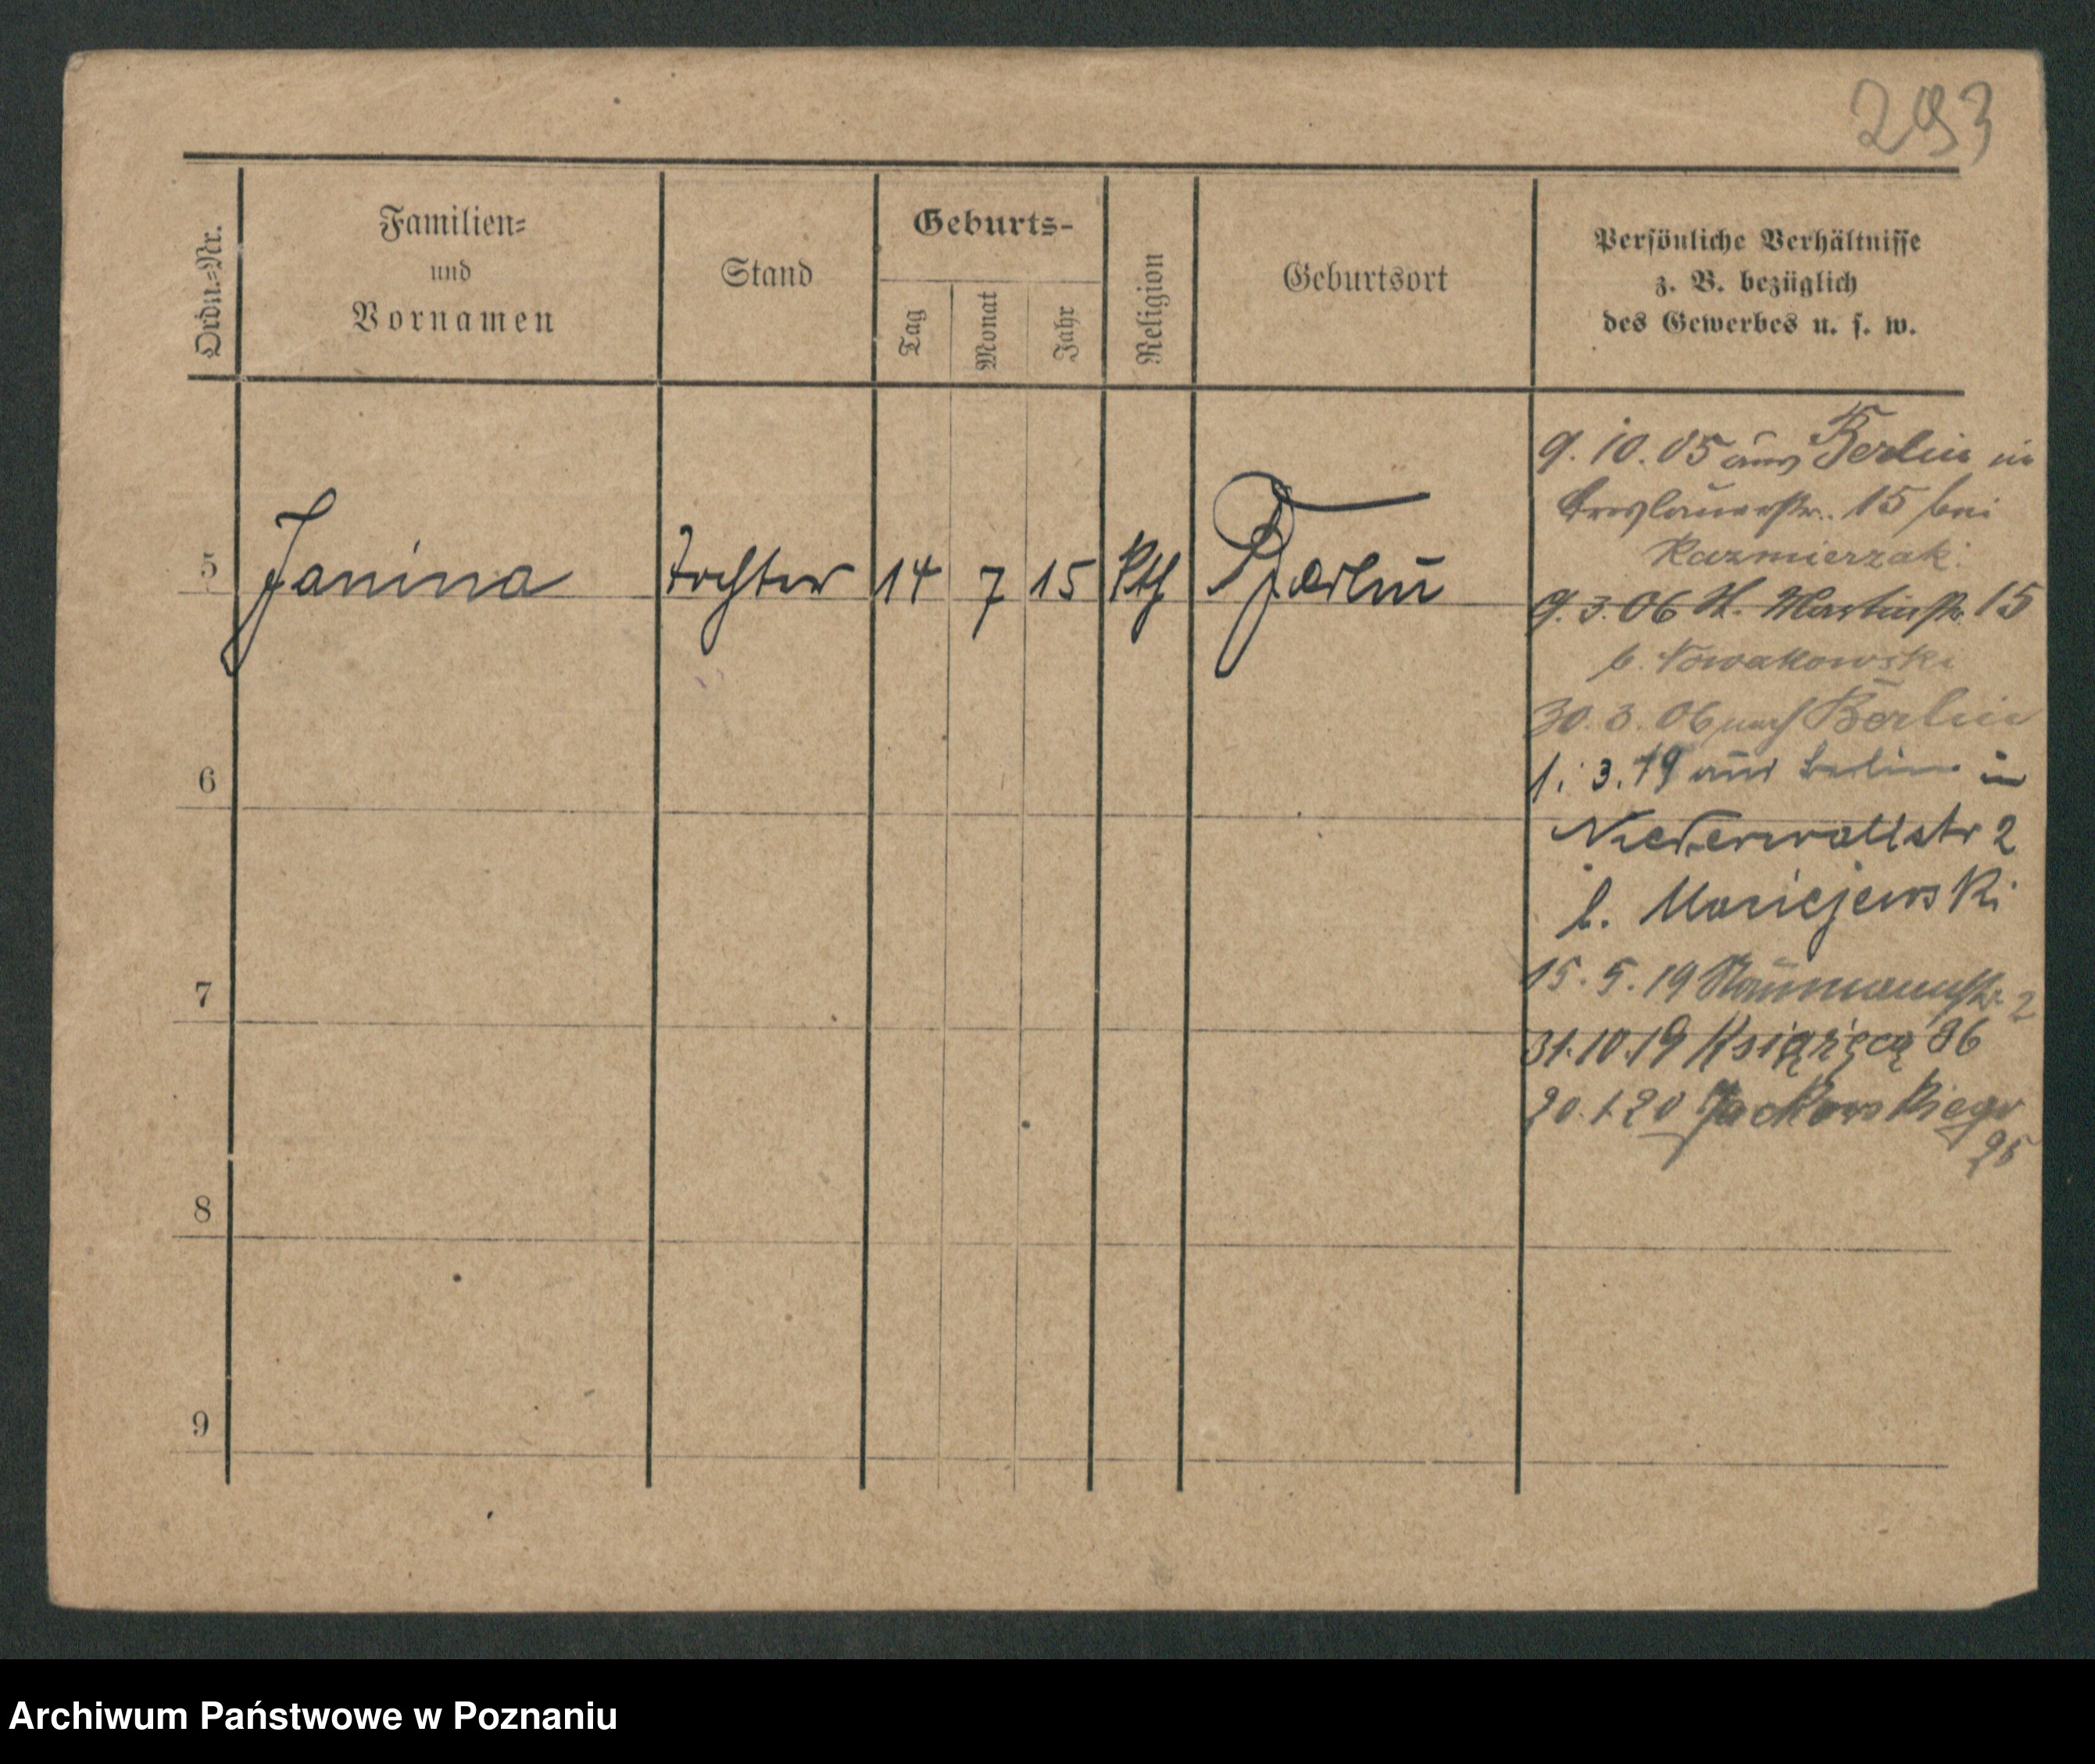 293
Ordn.=Nr.
Familien=
und
Vornamen
Stand
Geburts-
Tag
Monat
Jahr
Religion
Geburtsort
Persönliche Verhältnisse
z. B. bezüglich
des Gewerbes u. s. w.
5 Janina Tochter 14 7 15 Kth Berlin
9. 10. 05 aus Berlin in
Breslauerstr. 15 bei
Kazmierzak.
9. 3. 06 St. Martinstr. 15
b. Nowakowski
30. 3. 06 nach Berlin
1. 3. 19 aus Berlin in
Niederwallstr 2
b. Maciejewski
15. 5. 19 Naumannstr. 2
31. 10. 19 Książęca 36
20. 1. 20 Jackowskiego
6
7
8
9
Archiwum Państwowe w Poznaniu